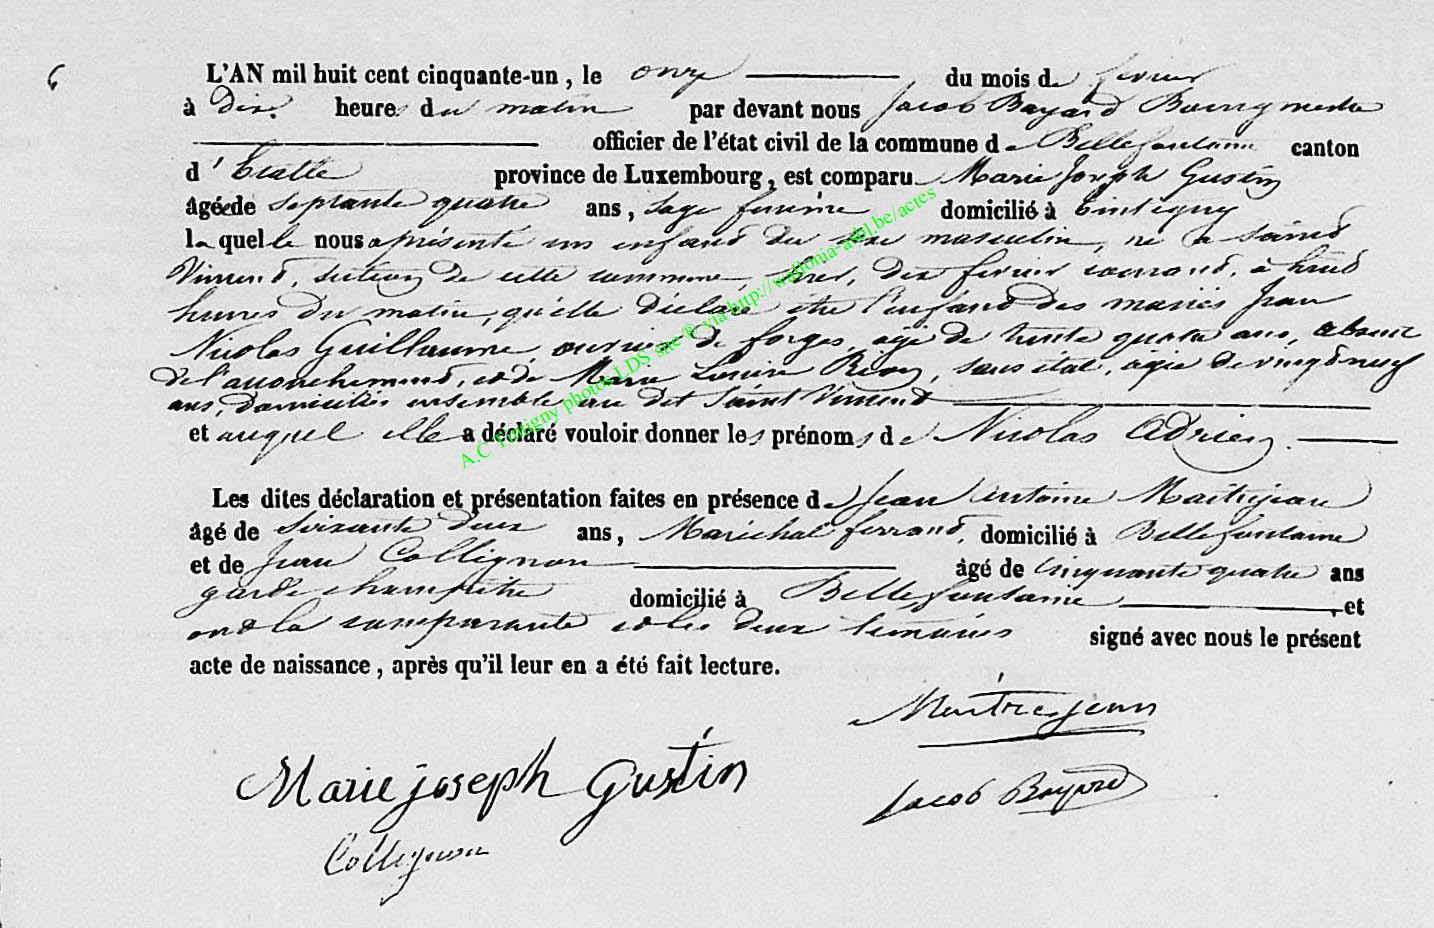 6
L'AN mil huit cent cinquante-un, le onze du mois de fevrier
à dix heures du matin par devant nous Jacob Bayard Bourgmestre
officier de l'état civil de la commune de Bellefontaine canton
d'Etalle province de Luxembourg, est comparu Marie Joseph Gustin
âgée de septante quatre ans, sage femme domicilié à tintigny
la quelle nous a présenté un enfant du sexe masculin, né à Saint
Vincent, section de cette commune hier, dix fevrier courant, à huit
heures du matin, qu'elle déclare etre l'enfant des mariés Jean
Nicolas Guillaume, ouvrier de forges, agé de trente quatre ans, absent
de l'accouchement, et de Marie Louise, sans état, agée de vingt neuf
ans, domiciliés ensemble au dit Saint Vincent
et auquel elle a déclaré vouloir donner les prénoms de Nicolas Adrien.
Les dites déclaration et présentation faites en présence de Jean Antoine Maitrejean
âgé de soixante deux ans, Maréchal ferrant, domicilié à Bellefontaine
et de Jean Collignon âgé de cinquante quatre ans
garde champêtre domicilié à Bellefontaine et
ont la comparante et les deux temoins signé avec nous le présent
acte de naissance, après qu'il leur en a été fait lecture.
Maitrejean
Marie joseph gustin
Jacob Bayard
Collignon
A.C Tintigny photos LDS site ® via http://wallonia-asbl.be/actes